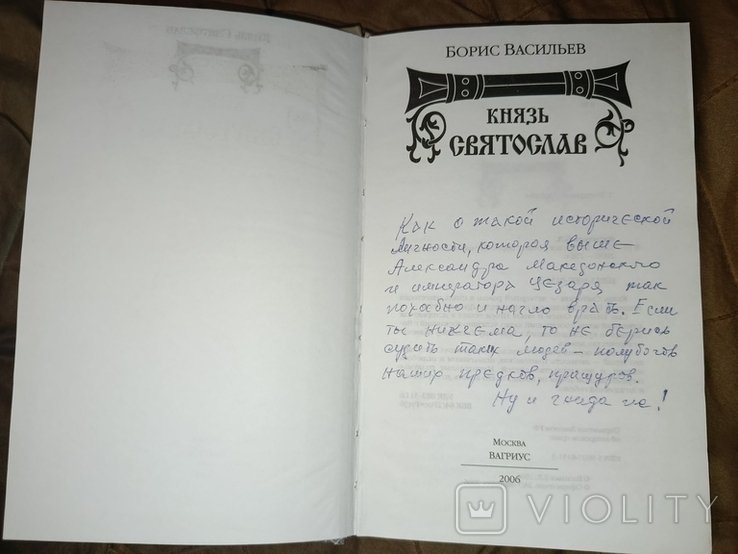 БОРИС ВАСИЛЬЕВ
КНЯЗЬ
СВЯТОСЛАВ
Как о такой исторической
личности, которая выше
Александра Македонского
и императора Цезаря так
похабно и нагло врать. Если
ты никчема, то не берись
судить таких людей – полубогов
наших предков, пращуров.
Ну и гнида
МОСКВА
ВАГРИУС
2006
VIOLITY